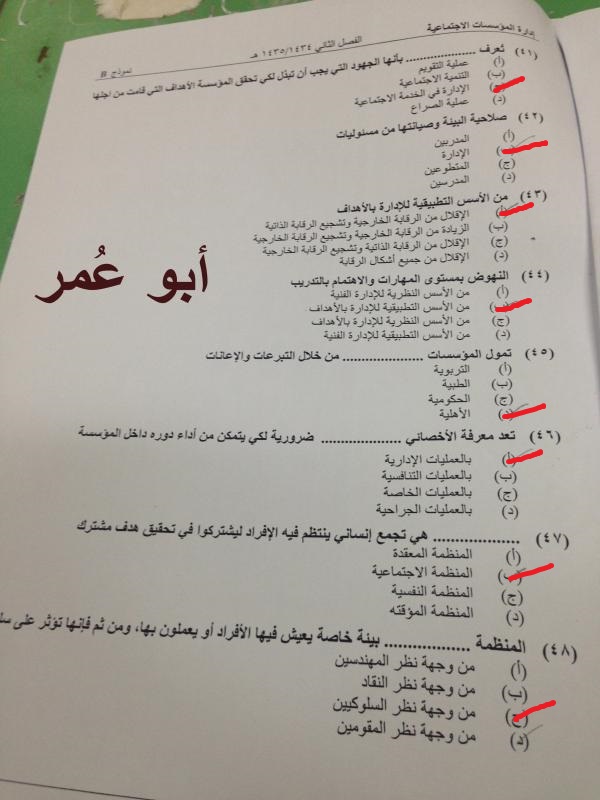 إدارة المؤسسات الاجتماعية
الفصل الثاني ١٤٣٥/١٤٣٤ هـ
نموذج B
(٤١) تُعرف .................. بأنها الجهود التي يجب أن تبذل لكي تحقق المؤسسة الأهداف التي قامت من اجلها
(أ) عملية التقويم
(ب) التنمية الاجتماعية
(ج) الإدارة في الخدمة الاجتماعية
(د) عملية الصراع
(٤٢) صلاحية البيئة وصيانتها من مسئوليات
(أ) المدربين
(ب) الإدارة
(ج) المتطوعين
(د) المدرسين
(٤٣) من الأسس التطبيقية للإدارة بالأهداف
(أ) الإقلال من الرقابة الخارجية وتشجيع الرقابة الذاتية
(ب) الزيادة من الرقابة الخارجية وتشجيع الرقابة الخارجية
(ج) الإقلال من الرقابة الذاتية وتشجيع الرقابة الخارجية
(د) الإقلال من جميع أشكال الرقابة
أبو عُمر
(٤٤) النهوض بمستوى المهارات والاهتمام بالتدريب
(أ) من الأسس النظرية للإدارة الفنية
(ب) من الأسس التطبيقية للإدارة بالأهداف
(ج) من الأسس النظرية للإدارة بالأهداف
(د) من الأسس التطبيقية للإدارة الفنية
(٤٥) تمول المؤسسات .................... من خلال التبرعات والإعانات
(أ) التربوية
(ب) الطبية
(ج) الحكومية
(د) الأهلية
(٤٦) تعد معرفة الأخصائي .................... ضرورية لكي يتمكن من أداء دوره داخل المؤسسة
(أ) بالعمليات الإدارية
(ب) بالعمليات التنافسية
(ج) بالعمليات الخاصة
(د) بالعمليات الجراحية
(٤٧) .................... هي تجمع إنساني ينتظم فيه الإفراد ليشتركوا في تحقيق هدف مشترك
(أ) المنظمة المعقدة
(ب) المنظمة الاجتماعية
(ج) المنظمة النفسية
(د) المنظمة المؤقته
(٤٨) المنظمة .................. بيئة خاصة يعيش فيها الأفراد أو يعملون بها، ومن ثم فإنها تؤثر على
(أ) من وجهة نظر المهندسين
(ب) من وجهة نظر النقاد
(ج) من وجهة نظر السلوكيين
(د) من وجهة نظر المقومين